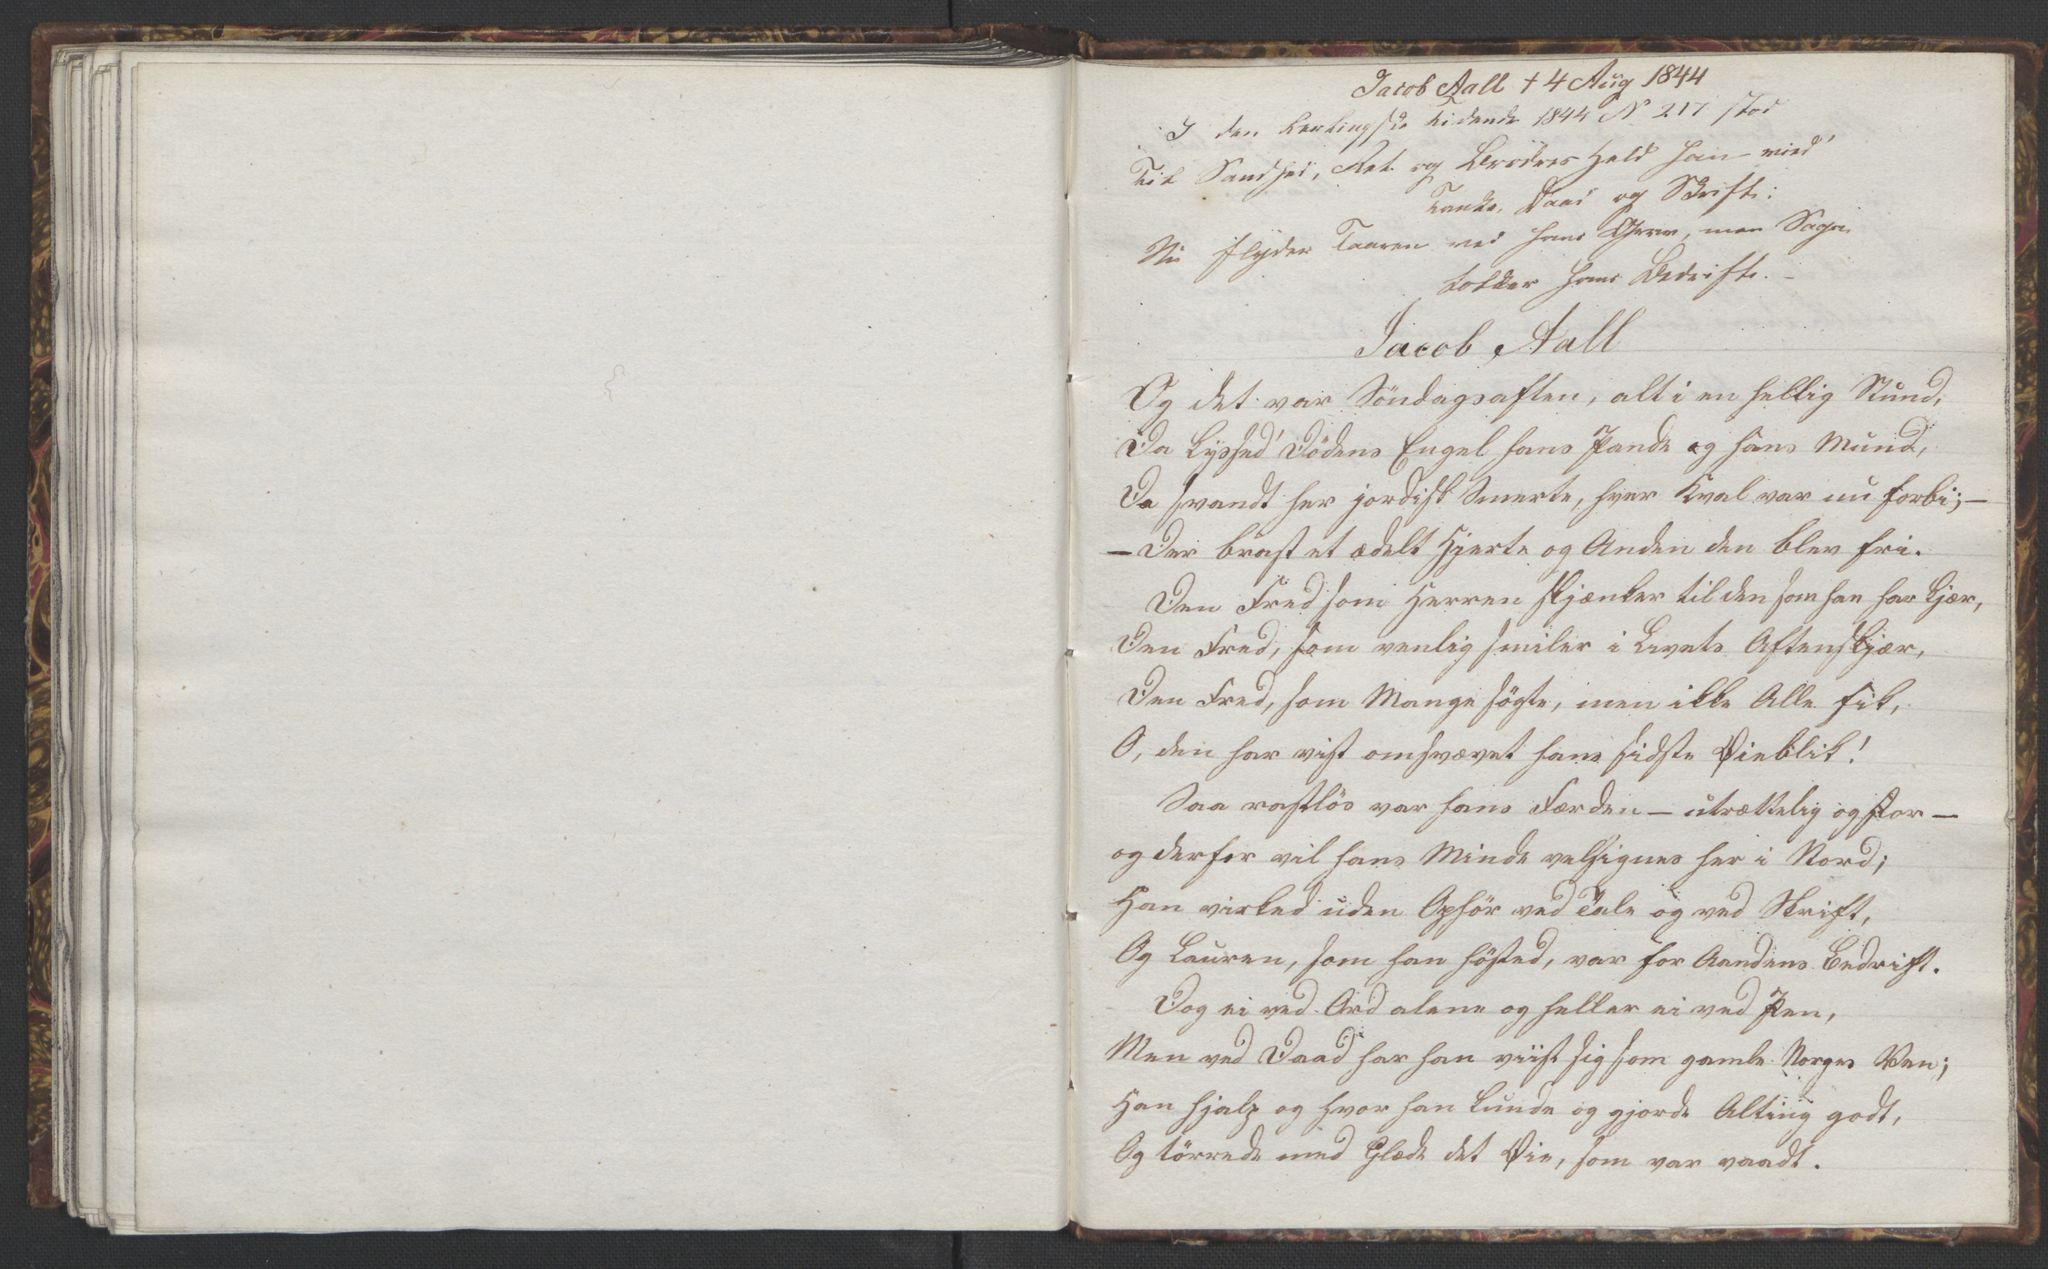 Jacob Aall † 4 Aug 1844
I den Berlingske Tidende 1844 No 217 stod
Til Sandhed, Ret og Brödres Held han vied'
Tanke, Daad og Skrift:
Nu flyder Taaren ved hans Grav, men Saga
tolker hans Bedrift. –
Jacob Aall
Og det var Söndagsaften, alt i en hellig Stund,
Da kyssed' Dödens Engel hans Pande og hans Mund,
Da svandt her jordisk Smerte, hver Kval var nu forbi; –
– Der brast et ædelt Hjerte og Anden den blev fri.
Den Fred som Herren skjænker til den som han har kjær,
Den Fred, som venlig smiler i Livets Aftenskjær,
Den Fred, som Mange sögte, men ikke Alle fik,
O, den har vist omsvævet hans sidste Øieblik!
Saa rastlös var hans Færden – utrættelig og stor –
og derfor vil hans Minde velsignes her i Nord;
Han virked uden Ophör ved Tale og ved Skrift,
Og Lauren, som han hösted, var for Aandens Bedrift.
Dog ei ved Ord alene og heller ei ved Pen,
Men ved Daad har han viist sig som gamle Norges Ven;
Han hjalp og hvor han kunde og gjorde Alting godt,
Og törrede med Glæde det Øie, som var vaadt.